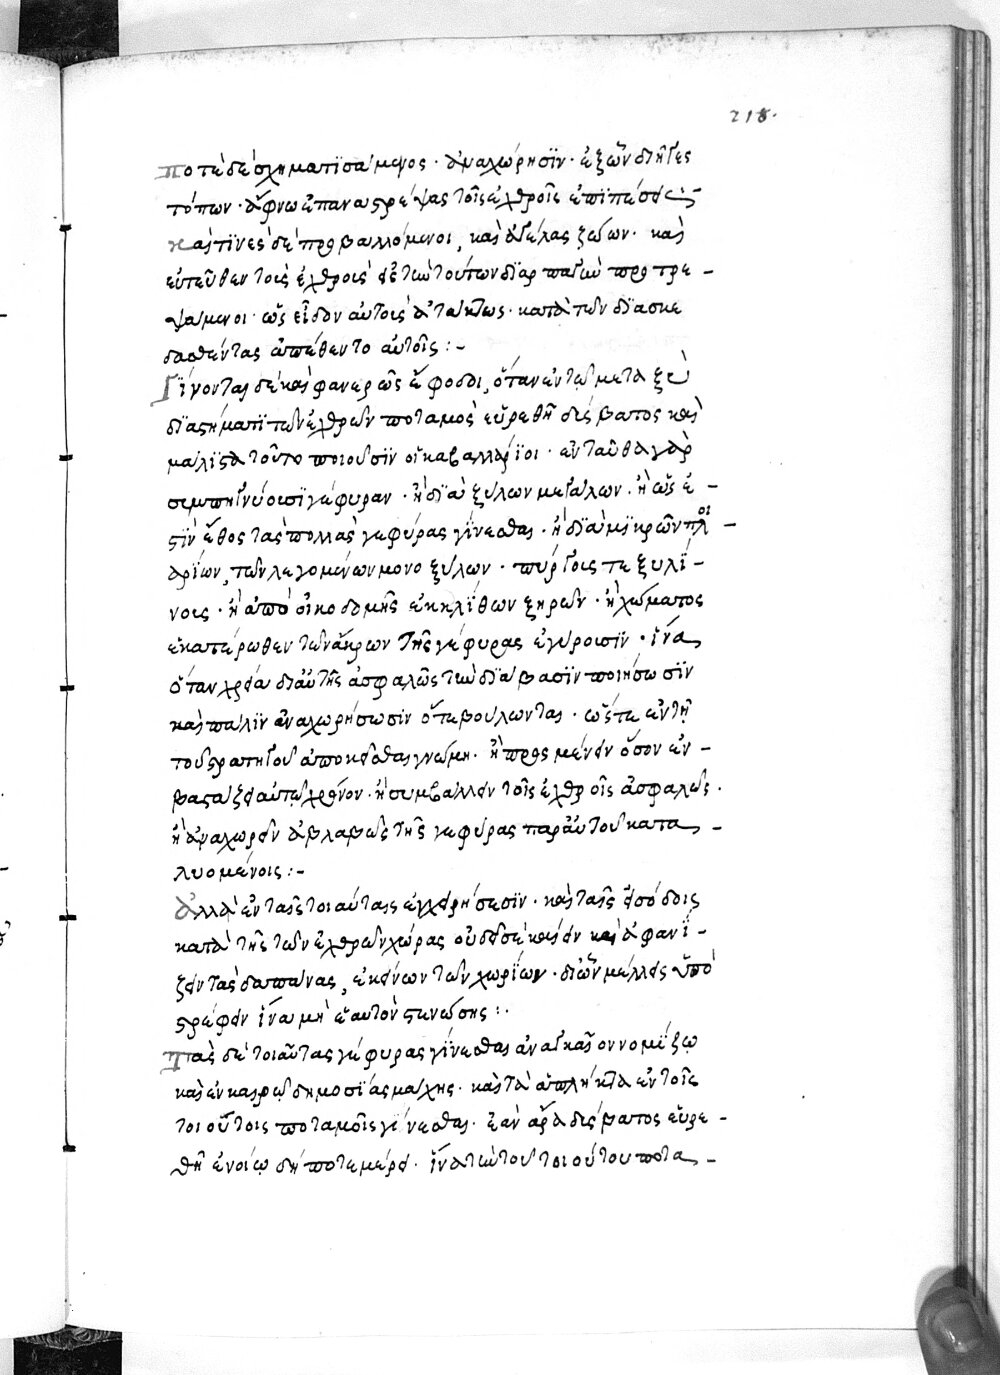 218.
ποτὲ δὲ σχηματισάμενος · ἀναχώρησιν · ἐξ ὧν διῆγες
τόπων · ἄφνω ἐπαναστρέψας τοῖς ἐχθροῖς ἐπιπέσεις
καὶ τινὲς δὲ προβαλλόμενοι, καὶ ἀγέλας ζώων · καὶ
ἐντεῦθεν τοὺς ἐχθροὺς εἰς τὴν τούτων διαρπαγὴν προτρε –
ψάμενοι · ὡς εἶδον αὐτοὺς ἀτάκτως · κατὰ τῶν διασκε
δασθέντας ἀπέθεντο αὐτοῖς :–
Γίνονται δὲ καὶ φανερῶς ἔφοδοι, ὅταν ἐν τῷ μεταξὺ
διαστήματι τῶν ἐχθρῶν ποταμὸς εὑρεθῆ δύσβατος καὶ
μάλιστα τοῦτο ποιοῦσιν οἱ καβαλλάριοι · ἐνταῦθα γὰρ
συμπηγνύουσι γέφυραν · ἢ διὰ ξύλων μεγάλων · ἢ ὡς ἐ –
στὶν ἔθος τὰς πολλὰς γεφύρας γίνεσθαι · ἢ διὰ μικρῶν πλοι –
αρίων, τῶν λεγομένων μονοξύλων · πύργους τε ξυλί –
νους · ἢ ἀπὸ οἰκοδομῆς ἐκ λίθων ξηρῶν · ἢ χώματος
ἑκατέρωθεν τῶν ἄκρων τῆς γεφύρας ἐγείρουσιν · ἵνα
ὅταν χρεία δι' αὐτῆς ἀσφαλῶς τὴν διάβασιν ποιήσωσιν
καὶ πάλιν ἀναχωρήσωσιν ὅτε βούλωνται · ὥστε ἐν τῇ
τοῦ στρατηγοῦ ἀποκεῖσθαι γνώμη · ἢ προσμένειν ὅσον ἐν –
βαστάξει αὐτῷ χρόνον · ἢ συμβάλλειν τοῖς ἐχθροῖς ἀσφαλῶς ·
ἢ ἀναχωρεῖν ἀβλαβῶς τῆς γεφύρας παρ' αὐτοῦ κατα –
λυομένοις :–
ἀλλὰ ἐν ταῖς τοιαύταις ἐγχειρήσεσιν · καὶ ταῖς εἰσόδοις
κατὰ τῆς τῶν ἐχθρῶν χώρας οὐ δεῖ σε καίειν καὶ ἀφανί –
ζειν τὰς δαπάνας, ἐκείνων τῶν χωρίων · δι' ὧν μέλλεις ὑπο
στρέφειν ἵνα μὴ ἑαυτὸν στενώσης :·
τὰς δὲ τοιαύτας γεφύρας γίνεσθαι ἀναγκαῖον νομίζω
καὶ ἐν καιρῷ δημοσίας μάχης · καὶ τὰ ἄπληκτα ἐν τοῖς
τοιούτοις ποταμοῖς γίνεσθαι · ἐὰν ἄρα δύσβατος εὑρε –
θῆ ἐν οἵῳ δήποτε μέρει · ἵνα τὴν τοῦ τοιούτου ποτα –